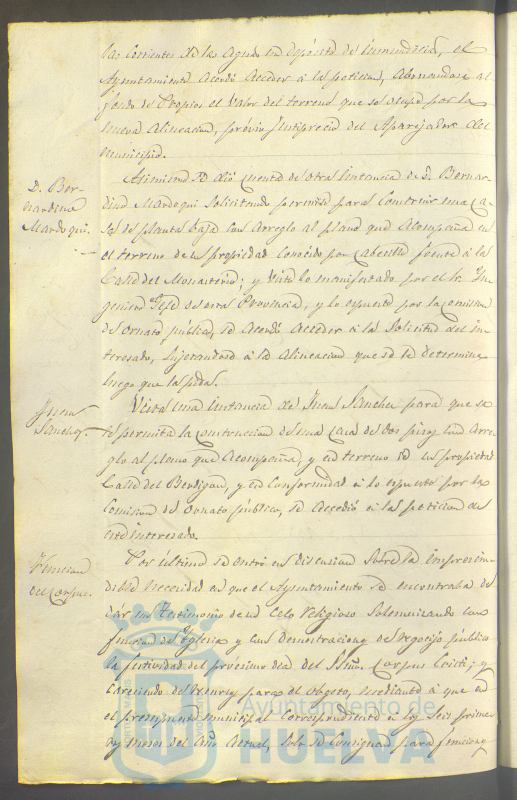 las corrientes de las Aguas en depósito de inmundicia, el
Ayuntamiento Acordó Acceder á la peticion, Abonandose al
fondo de Propios el Valor del terreno que se ocupe por la
nueva Alineacion, prévio Justiprecio del Aparejador del
municipio.
D. Ber-
nardino
Mardoqui.
Asimismo se dió cuenta de otra instancia de D. Bernar-
dino Mardoqui solicitando permiso para construir una ca-
sa de planta baja con arreglo al plano que Acompaña en
el terreno de su propiedad conocido por Cabecillo frente á la
Calle del Monasterio; y Visto lo manifestado por el Sr. In-
geniero Gefe de esta Provincia, y lo espuesto por la comision
de Ornato público, se Acordó Acceder á la Solicitud del in-
teresado, sujetandose á la Alineacion que se le determine
luego que la pida.
Juan
Sanchez.
Vista una instancia de Juan Sanchez para que se
le permita la construccion de una casa de dos pisos con Arre-
glo al plano que Acompaña, y en terreno de su propiedad
Calle del Berdigon, y en conformidad á lo espuesto por la
Comision de Ornato público, se Accedió á la peticion de
este interesado.
Funcion
del Corpus.
Por ultimo se entró en discusion sobre la imprescin-
dible necesidad en que el Ayuntamiento se encontraba de
dar un testimonio de su Celo Religioso Solemnizando con
funcion de Yglesia y con demostraciones de regocijo público
la festividad del procsimo dia del Ssmo. Corpus Cristi; y
Careciendo de para el Objeto, mediante á que en
el presupuesto municipal correspondiente á los Seis primer-
os meses del Año Actual, solo se Consignan para funciones
Ayuntamiento de
HUELVA